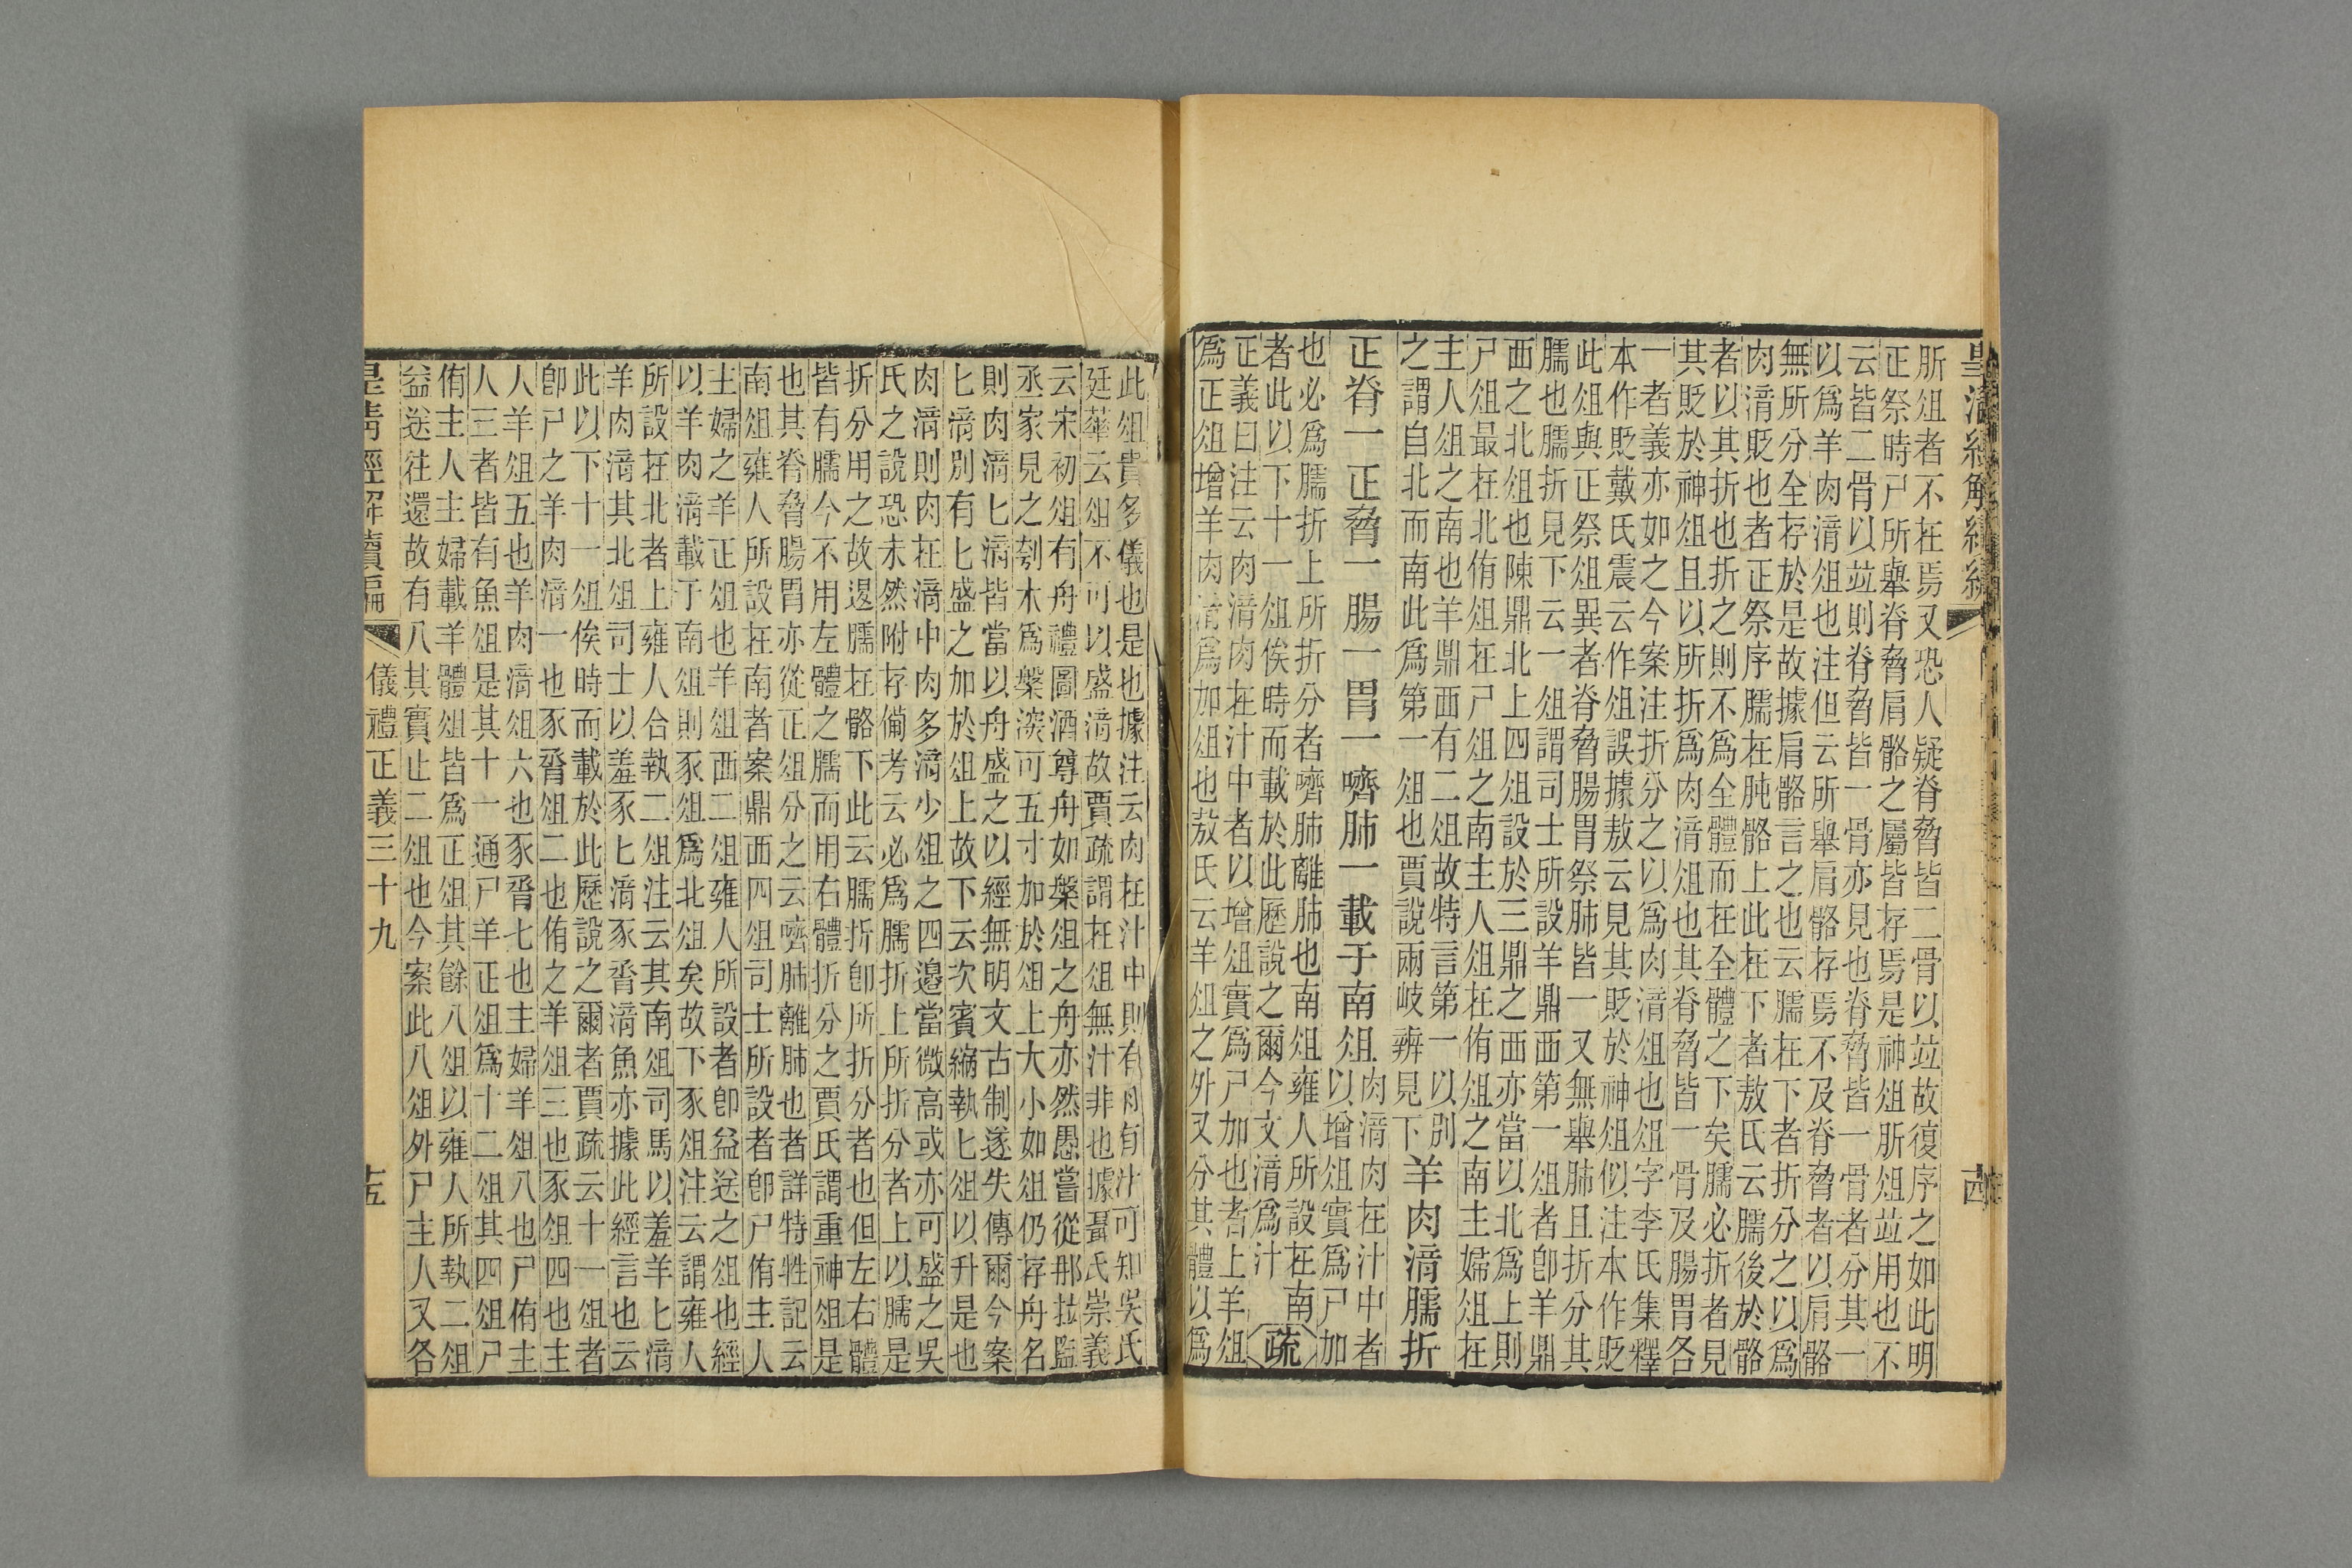 肵俎者不在焉又恐人疑脊脅皆二骨以竝故復序之如此明
正祭時尸所舉脊脅肩骼之屬皆存焉是神俎肵俎竝用也不
云皆二骨以竝則脊脅皆一骨亦見也脊脅皆一骨者分其一
以爲羊肉湆俎也注但云所舉肩骼存焉不及脊脅者以肩骼
無所分全存於是故據肩骼言之也云臑在下者折分之以爲
肉湆貶也者正祭序臑在肫骼上此在下者敖氏云臑後於骼
者以其折也折之則不爲全體而在全體之下矣臑必折者見
其貶於神俎且以所折爲肉湆俎也其脊脅皆一骨及腸胃各
一者義亦如之今案注折分之以爲肉湆俎也俎字李氏集釋
本作貶戴氏震云作俎誤據敖云見其貶於神俎似注本作貶
此俎與正祭俎異者脊脅腸胃祭肺皆一又無舉肺且折分其
臑也臑折見下云一俎謂司士所設羊鼎西第一俎者卽羊鼎
西之北俎也陳鼎北上四俎設於三鼎之西亦當以北爲上則
尸俎最在北侑俎在尸俎之南主人俎在侑俎之南主婦俎在
主人俎之南也羊鼎西有二俎故特言第一以別
之謂自北而南此爲第一俎也賈說兩岐辨見下
羊肉湆臑折
正脊一正脅一腸一胃一嚌肺一載于南俎
肉湆肉在汁中者
以增俎實爲尸加
也必爲臑折上所折分者嚌肺離肺也南俎雍人所設在南
者此以下十一俎俟時而載於此歷說之爾今文湆爲汁
疏
正義曰注云肉湆肉在汁中者以增俎實爲尸加也者上羊俎
爲正俎增羊肉湆爲加俎也敖氏云羊俎之外又分其體以爲
此俎貴多儀也是也據注云肉在汁中則有肉有汁可知吳氏
廷華云俎不可以盛湆故賈疏謂在俎無汁非也據聶氏崇義
云宋初俎有舟禮圖酒尊舟如槃俎之舟亦然愚嘗從邢㧾監
丞家見之刳木爲槃深可五寸加於俎上大小如俎仍存舟名
則肉湆匕湆皆當以舟盛之以經無明文古制遂失傳爾今案
匕湆別有匕盛之加於俎上故下云次賓縮執匕俎以升是也
肉湆則肉在湆中肉多湆少俎之四邊當微高或亦可盛之吳
氏之說恐未然附存備考云必爲臑折上所折分者上以臑是
折分用之故退臑在骼下此云臑折卽所折分者也但左右體
皆有臑今不用左體之臑而用右體折分之賈氏謂重神俎是
也其脊脅腸胃亦從正俎分之云嚌肺離肺也者詳特牲記云
南俎雍人所設在南者案鼎西四俎司士所設者卽尸侑主人
主婦之羊正俎也羊俎西二俎雍人所設者卽益送之俎也經
以羊肉湆載于南俎則豕俎爲北俎矣故下豕俎注云謂雍人
所設在北者上雍人合執二俎注云其南俎司馬以羞羊匕湆
羊肉湆其北俎司士以羞豕匕湆豕脀湆魚亦據此經言也云
此以下十一俎俟時而載於此歷說之爾者賈疏云十一俎者
卽尸之羊肉湆一也豕脀俎二也侑之羊俎三也豕俎四也主
人羊俎五也羊肉湆俎六也豕脀七也主婦羊俎八也尸侑主
人三者皆有魚俎是其十一通尸羊正俎爲十二俎其四俎尸
侑主人主婦載羊體俎皆爲正俎其餘八俎以雍人所執二俎
益送往還故有八其實止二俎也今案此八俎外尸主人又各
皇清經解續編
儀禮正義三十九
十五